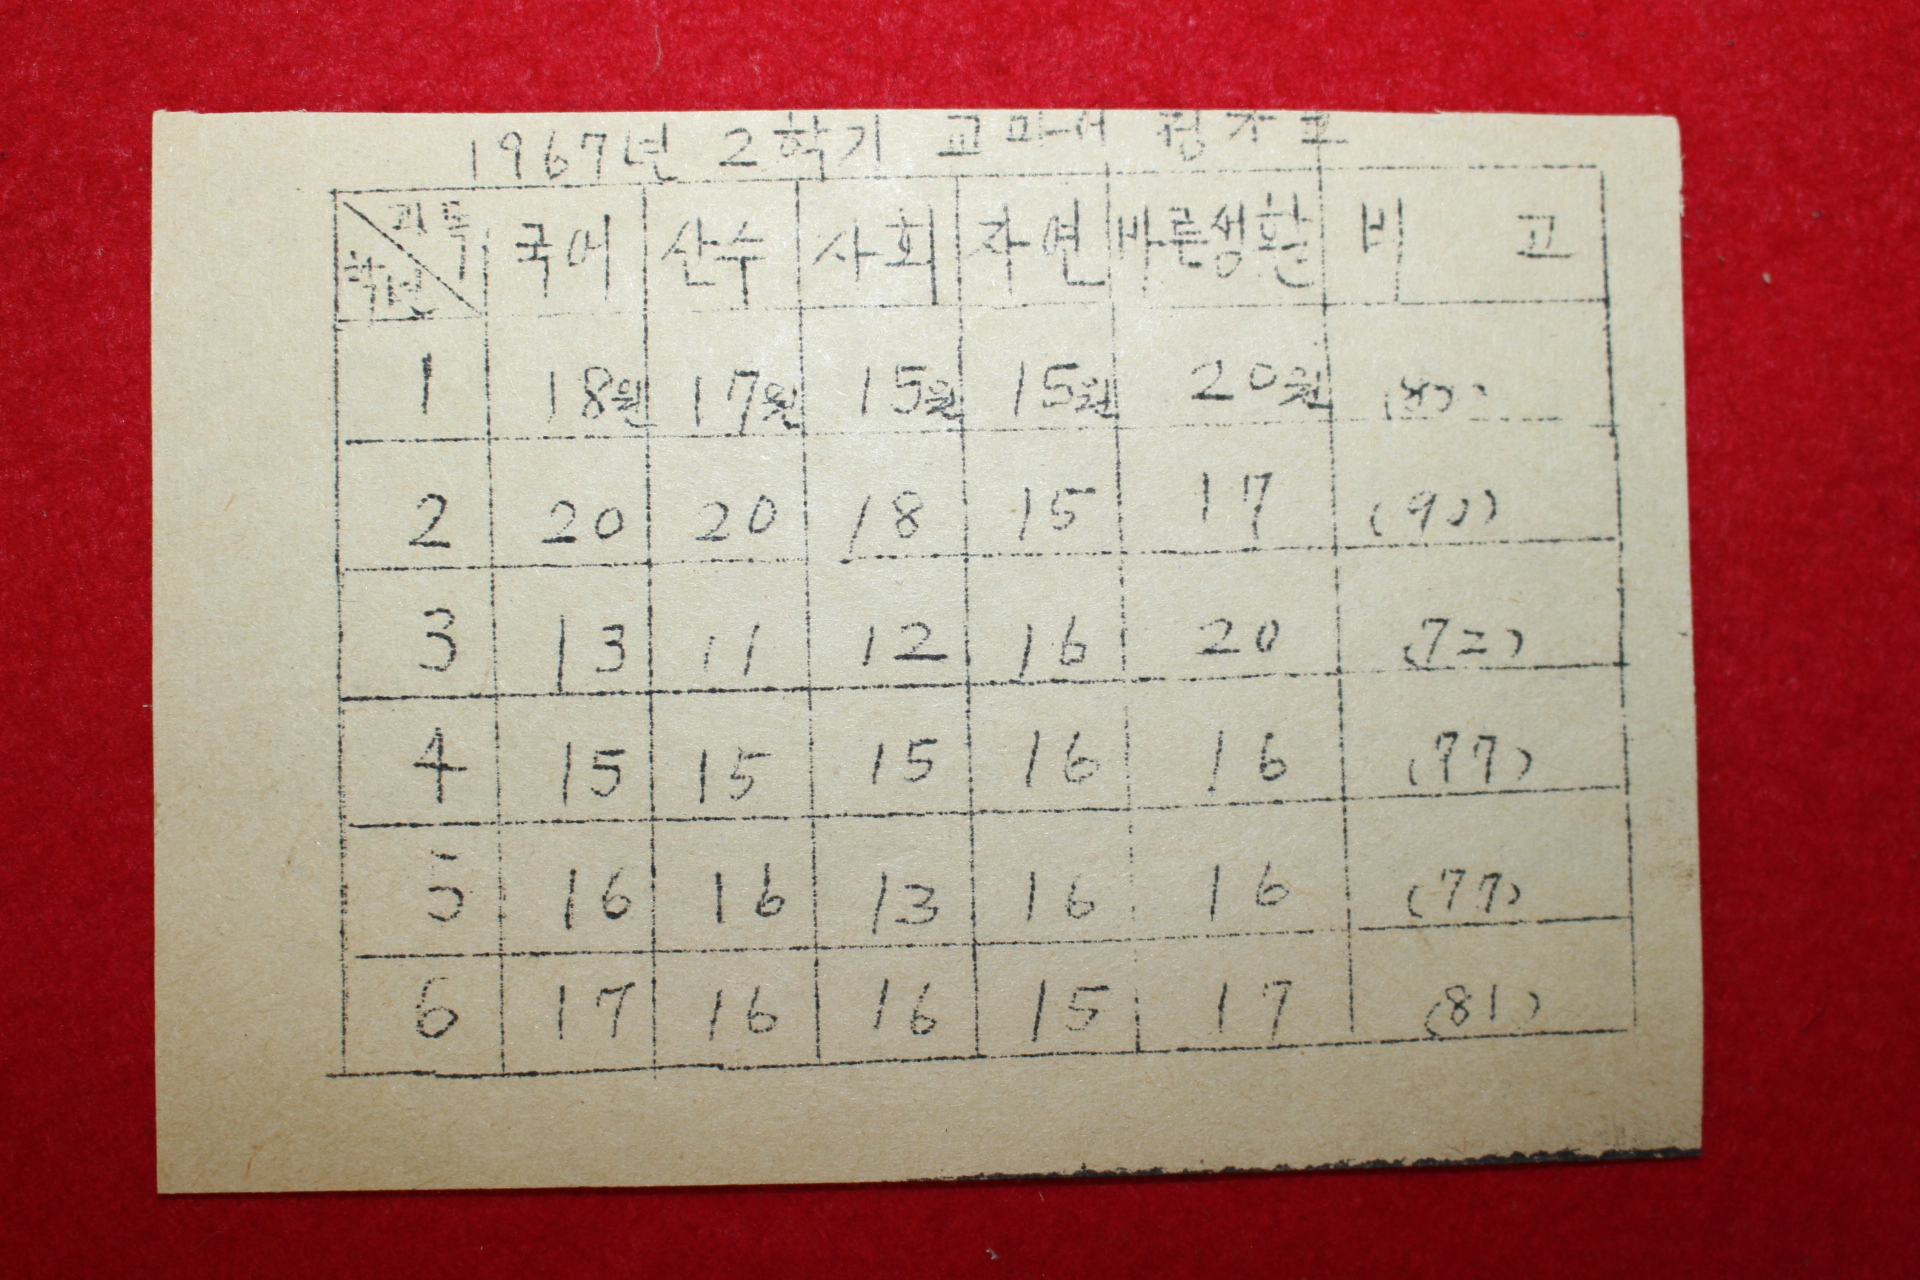 1967년 2학기 교과서 정가표
과목 학년 국어 산수 사회 자연 바른생활 비 고
1 18원 17원 15원 15원 20원
2 20 20 18 15 17 (90)
3 13 11 12 16 20 (72)
4 15 15 15 16 16 (77)
5 16 16 13 16 16 (77)
6 17 16 16 15 17 (81)